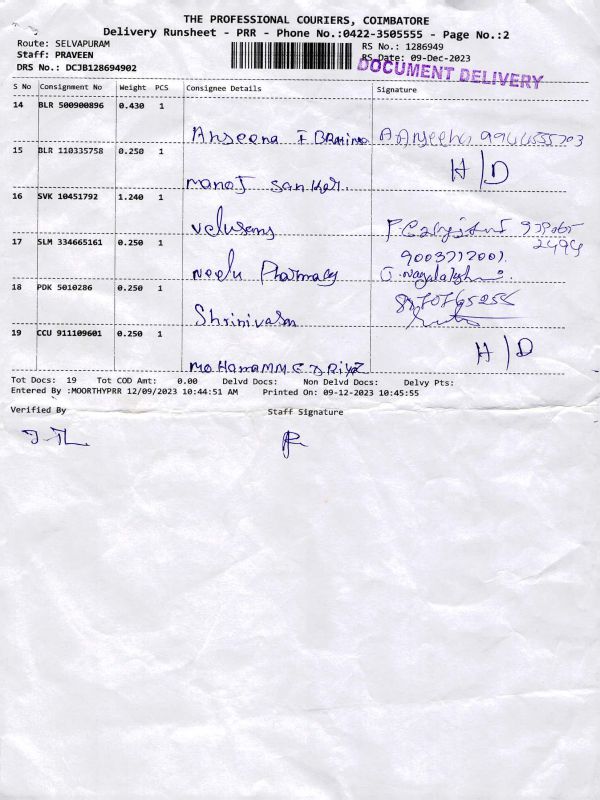 THE PROFESSIONAL COURIERS, COIMBATORE
Delivery Runsheet - PRR - Phone No.:0422-3505555 - Page No.:2
Route: SELVAPURAM
RS No.: 1286949
Staff: PRAVEEN
RS Date: 09-Dec-2023
DRS No.: DCJB128694902
DOCUMENT DELIVERY
S No Consignment No Weight PCS Consignee Details Signature
14 BLR 500900896 0.430 1
Anseena I BRAHIM
15 BLR 110335758 0.250 1
H/D
manoJ sanker.
16 SVK 10451792 1.240 1
Velusamy
17 SLM 334665161 0.250 1
9003717001.
Neelu Pharmacy
18 PDK 5010286 0.250 1
Shrinivasan
19 CCU 911109601 0.250 1
H/D
MOHAMAMMED Riyaz
Tot Docs: 19 Tot COD Amt: 0.00 Delvd Docs: Non Delvd Docs: Delvy Pts:
Entered By :MOORTHYPRR 12/09/2023 10:44:51 AM Printed On: 09-12-2023 10:45:55
Verified By Staff Signature